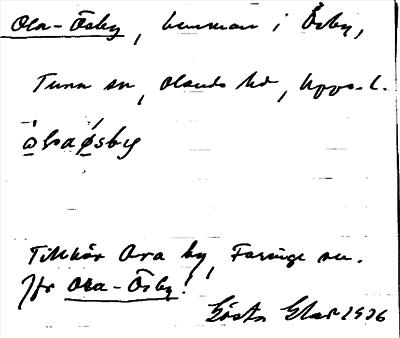 Ola-Ösby, hemman i Ösby,
Tuna sn, Olands hd, Upps. l.
ò̱ḷaǿ̱sby
Tillhör Ora by, Faringe sn.
Jfr Ora-Ösby!
Gösta 1936